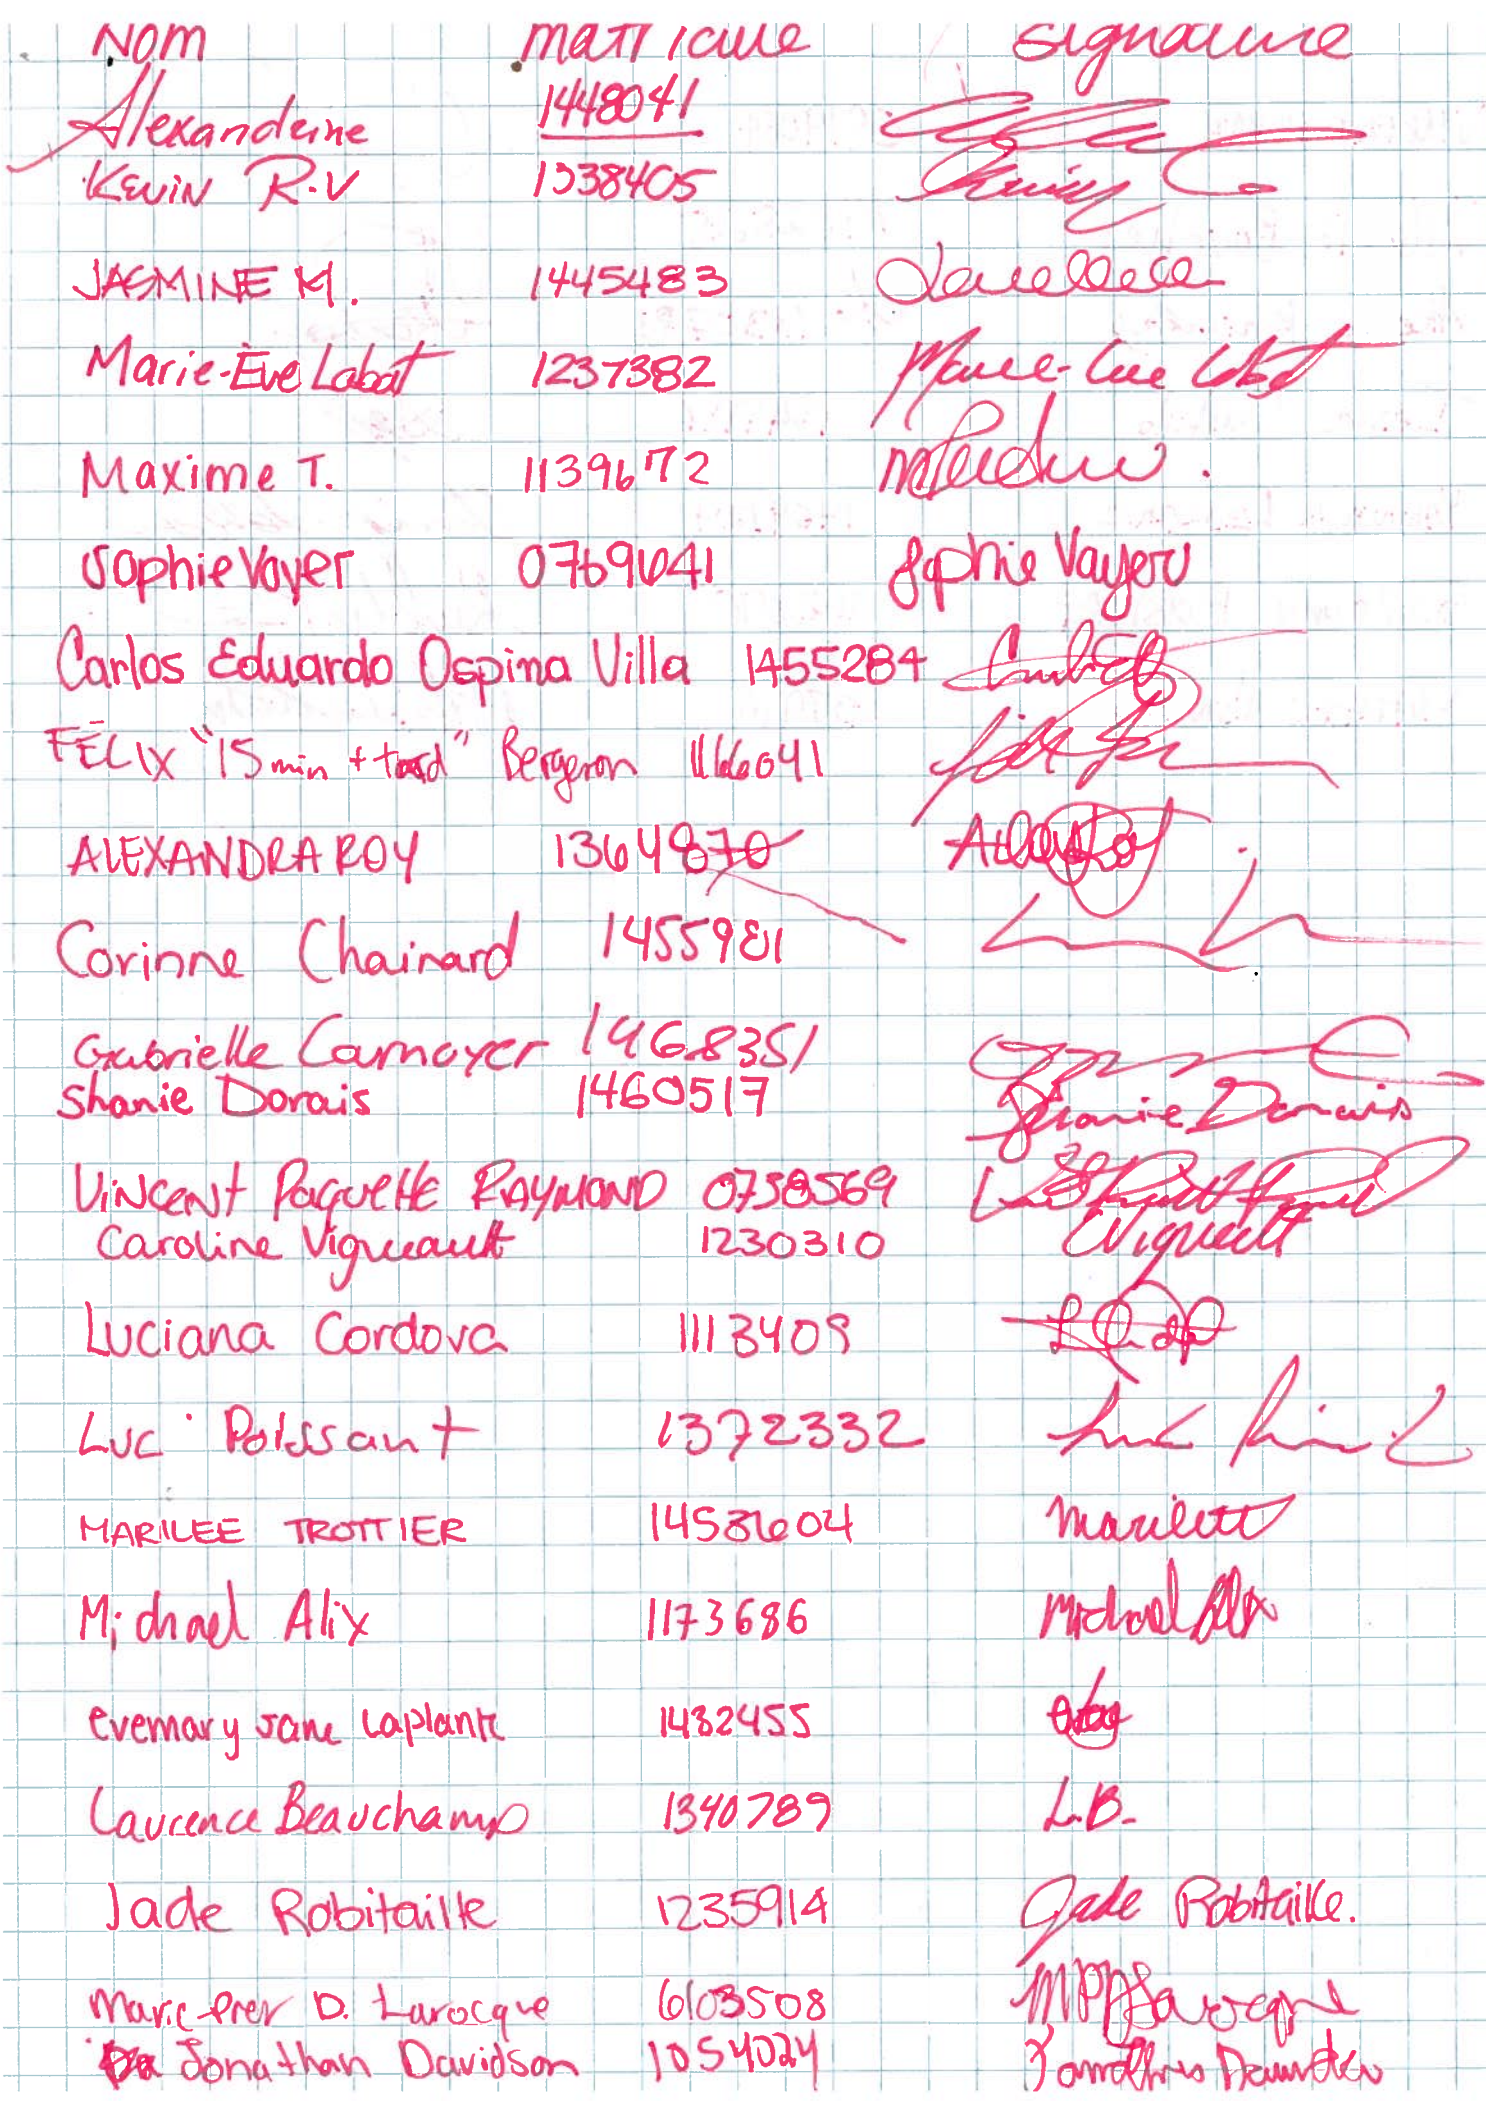 Nom matricule signature
Alexandrine 1448041
KEVIN R.V 1338405
JASMINE M. 1445483
Marie-Ève Labat 1237382 Marie-Eve Labat
Maxime T. 1139672
Sophie Voyer 0769641 Sophie Voyer
Carlos Eduardo Ospina Villa 1455284
FÉLIX "15 min + tard" Bergeron 1166041
ALEXANDRA ROY 1364870
Corinne Chainard 1455981
Gabrielle Camoyer 1468351
Shanie Dorais 1460517 Shanie Dorais
VINCENT Paquette RAYMOND 0738569
Caroline Vigneault 1230310 CVigneault
Luciana Cordova 1113409
Luc Poissant 1372332
MARILEE TROTTIER 1453604
Michael Alix 1173686 Michael Alix
evemary jane laplante 1432455
Laurence Beauchamp 1340789 L.B.
Jade Robitaille 1235914 Jade Robitaille.
D. Larocque 6103508
Jonathan Davidson 1054024